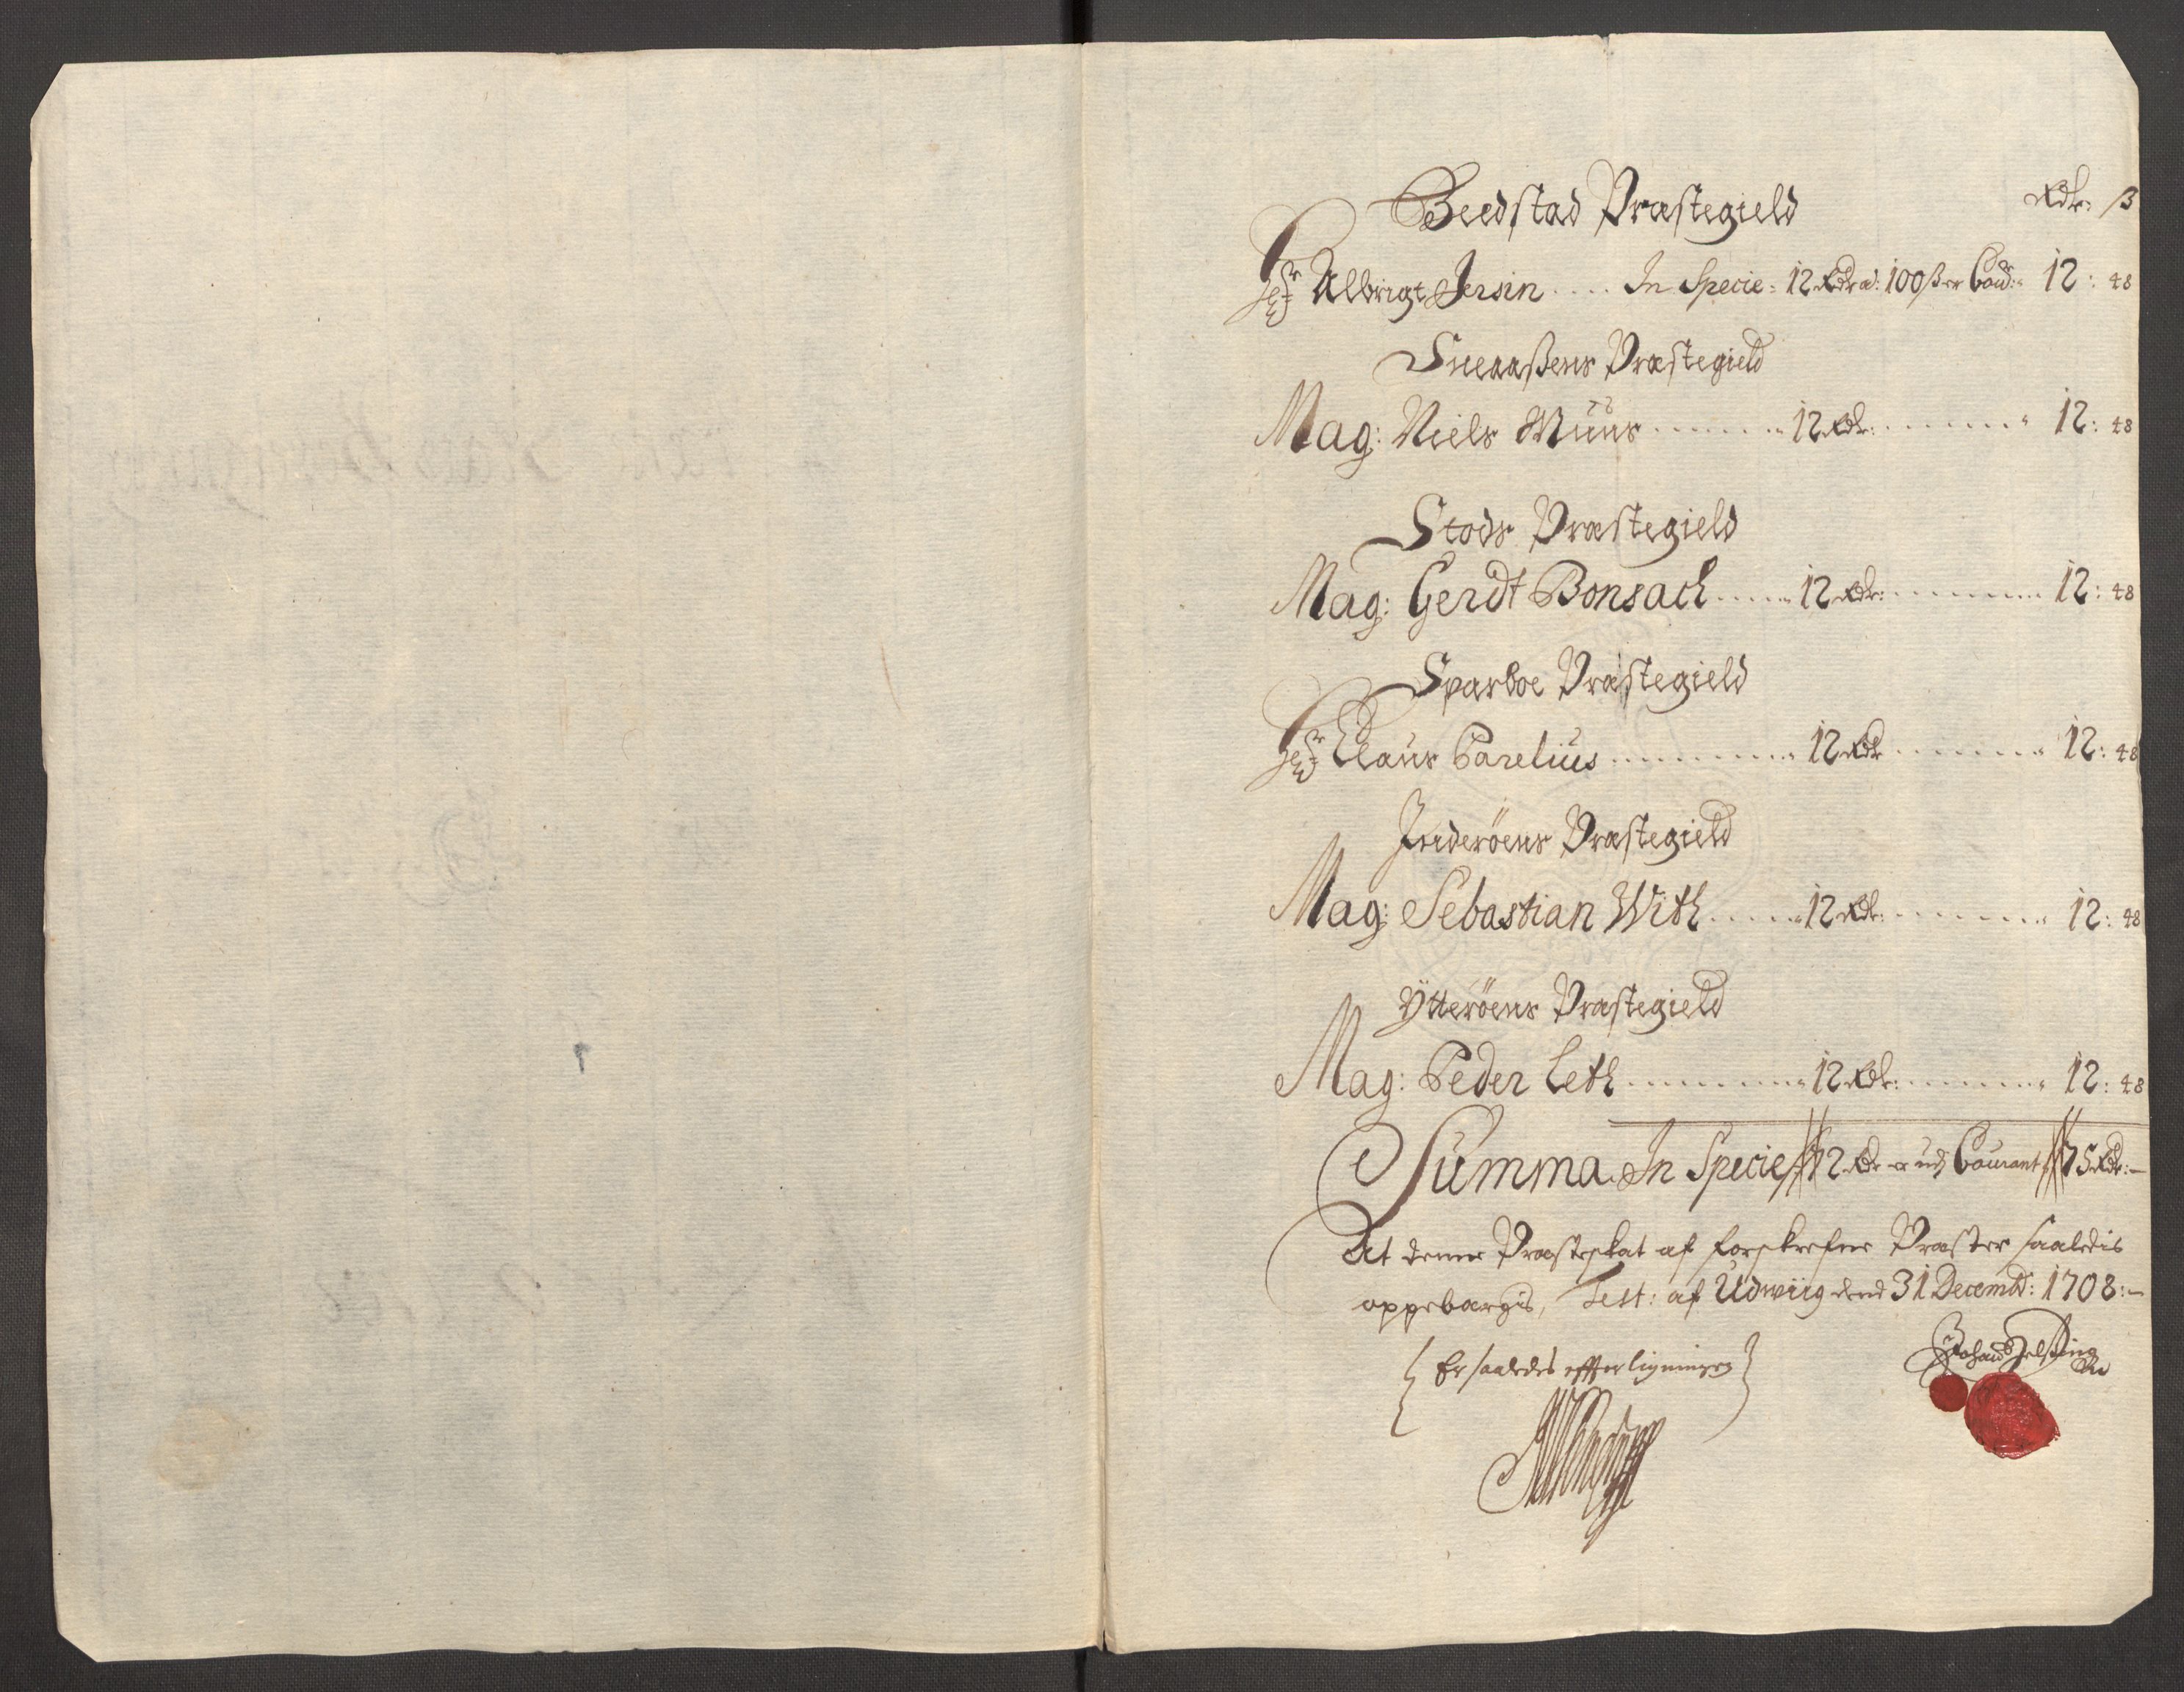 Beedstad Præstegield Rdr: ß
Hr Albrigt Jersin .... In Specie: 12 Rdr a: 100 ß er Cour: 12: 48
Sneaaßens Præstegield
Mag: Niels Muus ........ 12 Rdr: ........ 12: 48
Stods Præstegield
Mag: Gerdt Bonsach ..... 12 Rdr: ........ 12: 48
Sparboe Præstegield
Hr Claus Parelius ........ 12 Rdr ........ 12: 48
Inderöens Præstegield
Mag: Sebastian With ..... 12 Rdr: ........ 12: 48
Ytteröens Præstegield
Mag: Peder Leth ........ 12 Rdr: ........ 12: 48
Summa In Specie 72 Rdr er udj Courant 75 Rdr:-
At denne Præsteskat af forskrefne Præster saaledis
oppebærgis, Test: af Udwiig dend 31 Decembr: 1708:-
Er saaledes effter ligningen
Johan